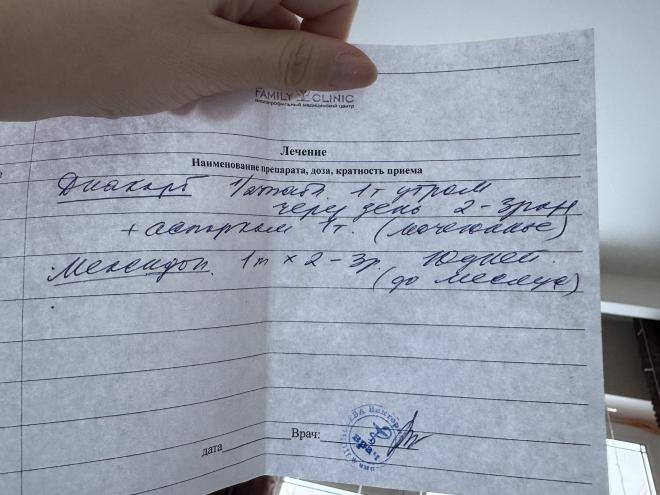 FAMILY CLINIC
многопрофильный медицинский центр
Лечение
Наименование препарата, доза, кратность приема
Диакарб 1т утром
через день 2-3 раза
+ аспаркам 1т. (мочегонные)
Мексидол. 1т × 2-3р. 10 дней.
(до месяца)
Врач:
дата
врач